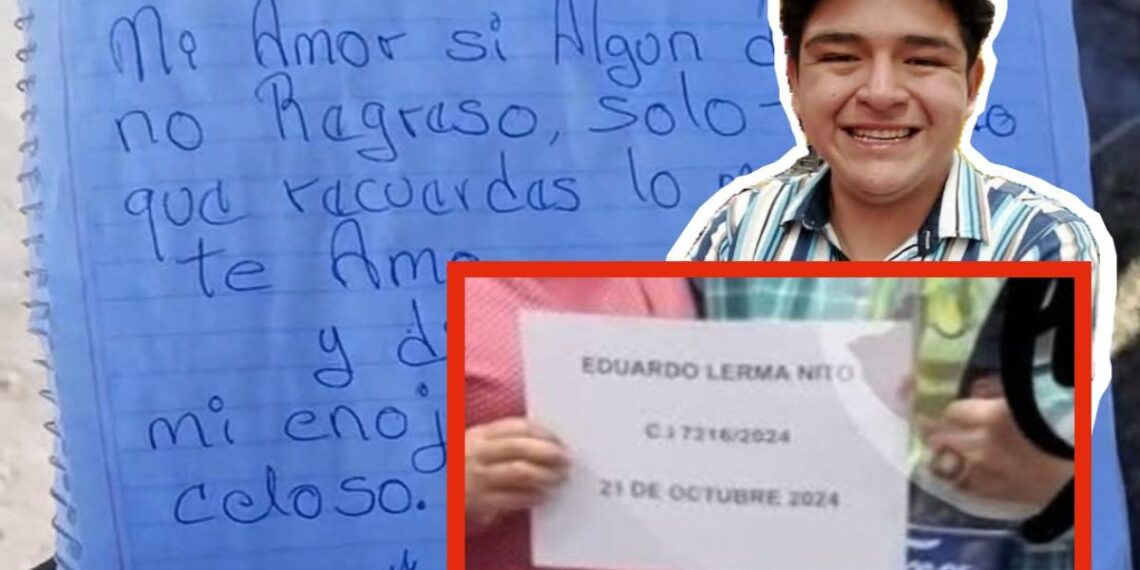 Mi Amor si Algún
no Regreso, solo
que recuerdas lo
te Amo
y
mi
celoso.
EDUARDO LERMA NITO
C.I 7316/2024
21 DE OCTUBRE 2024